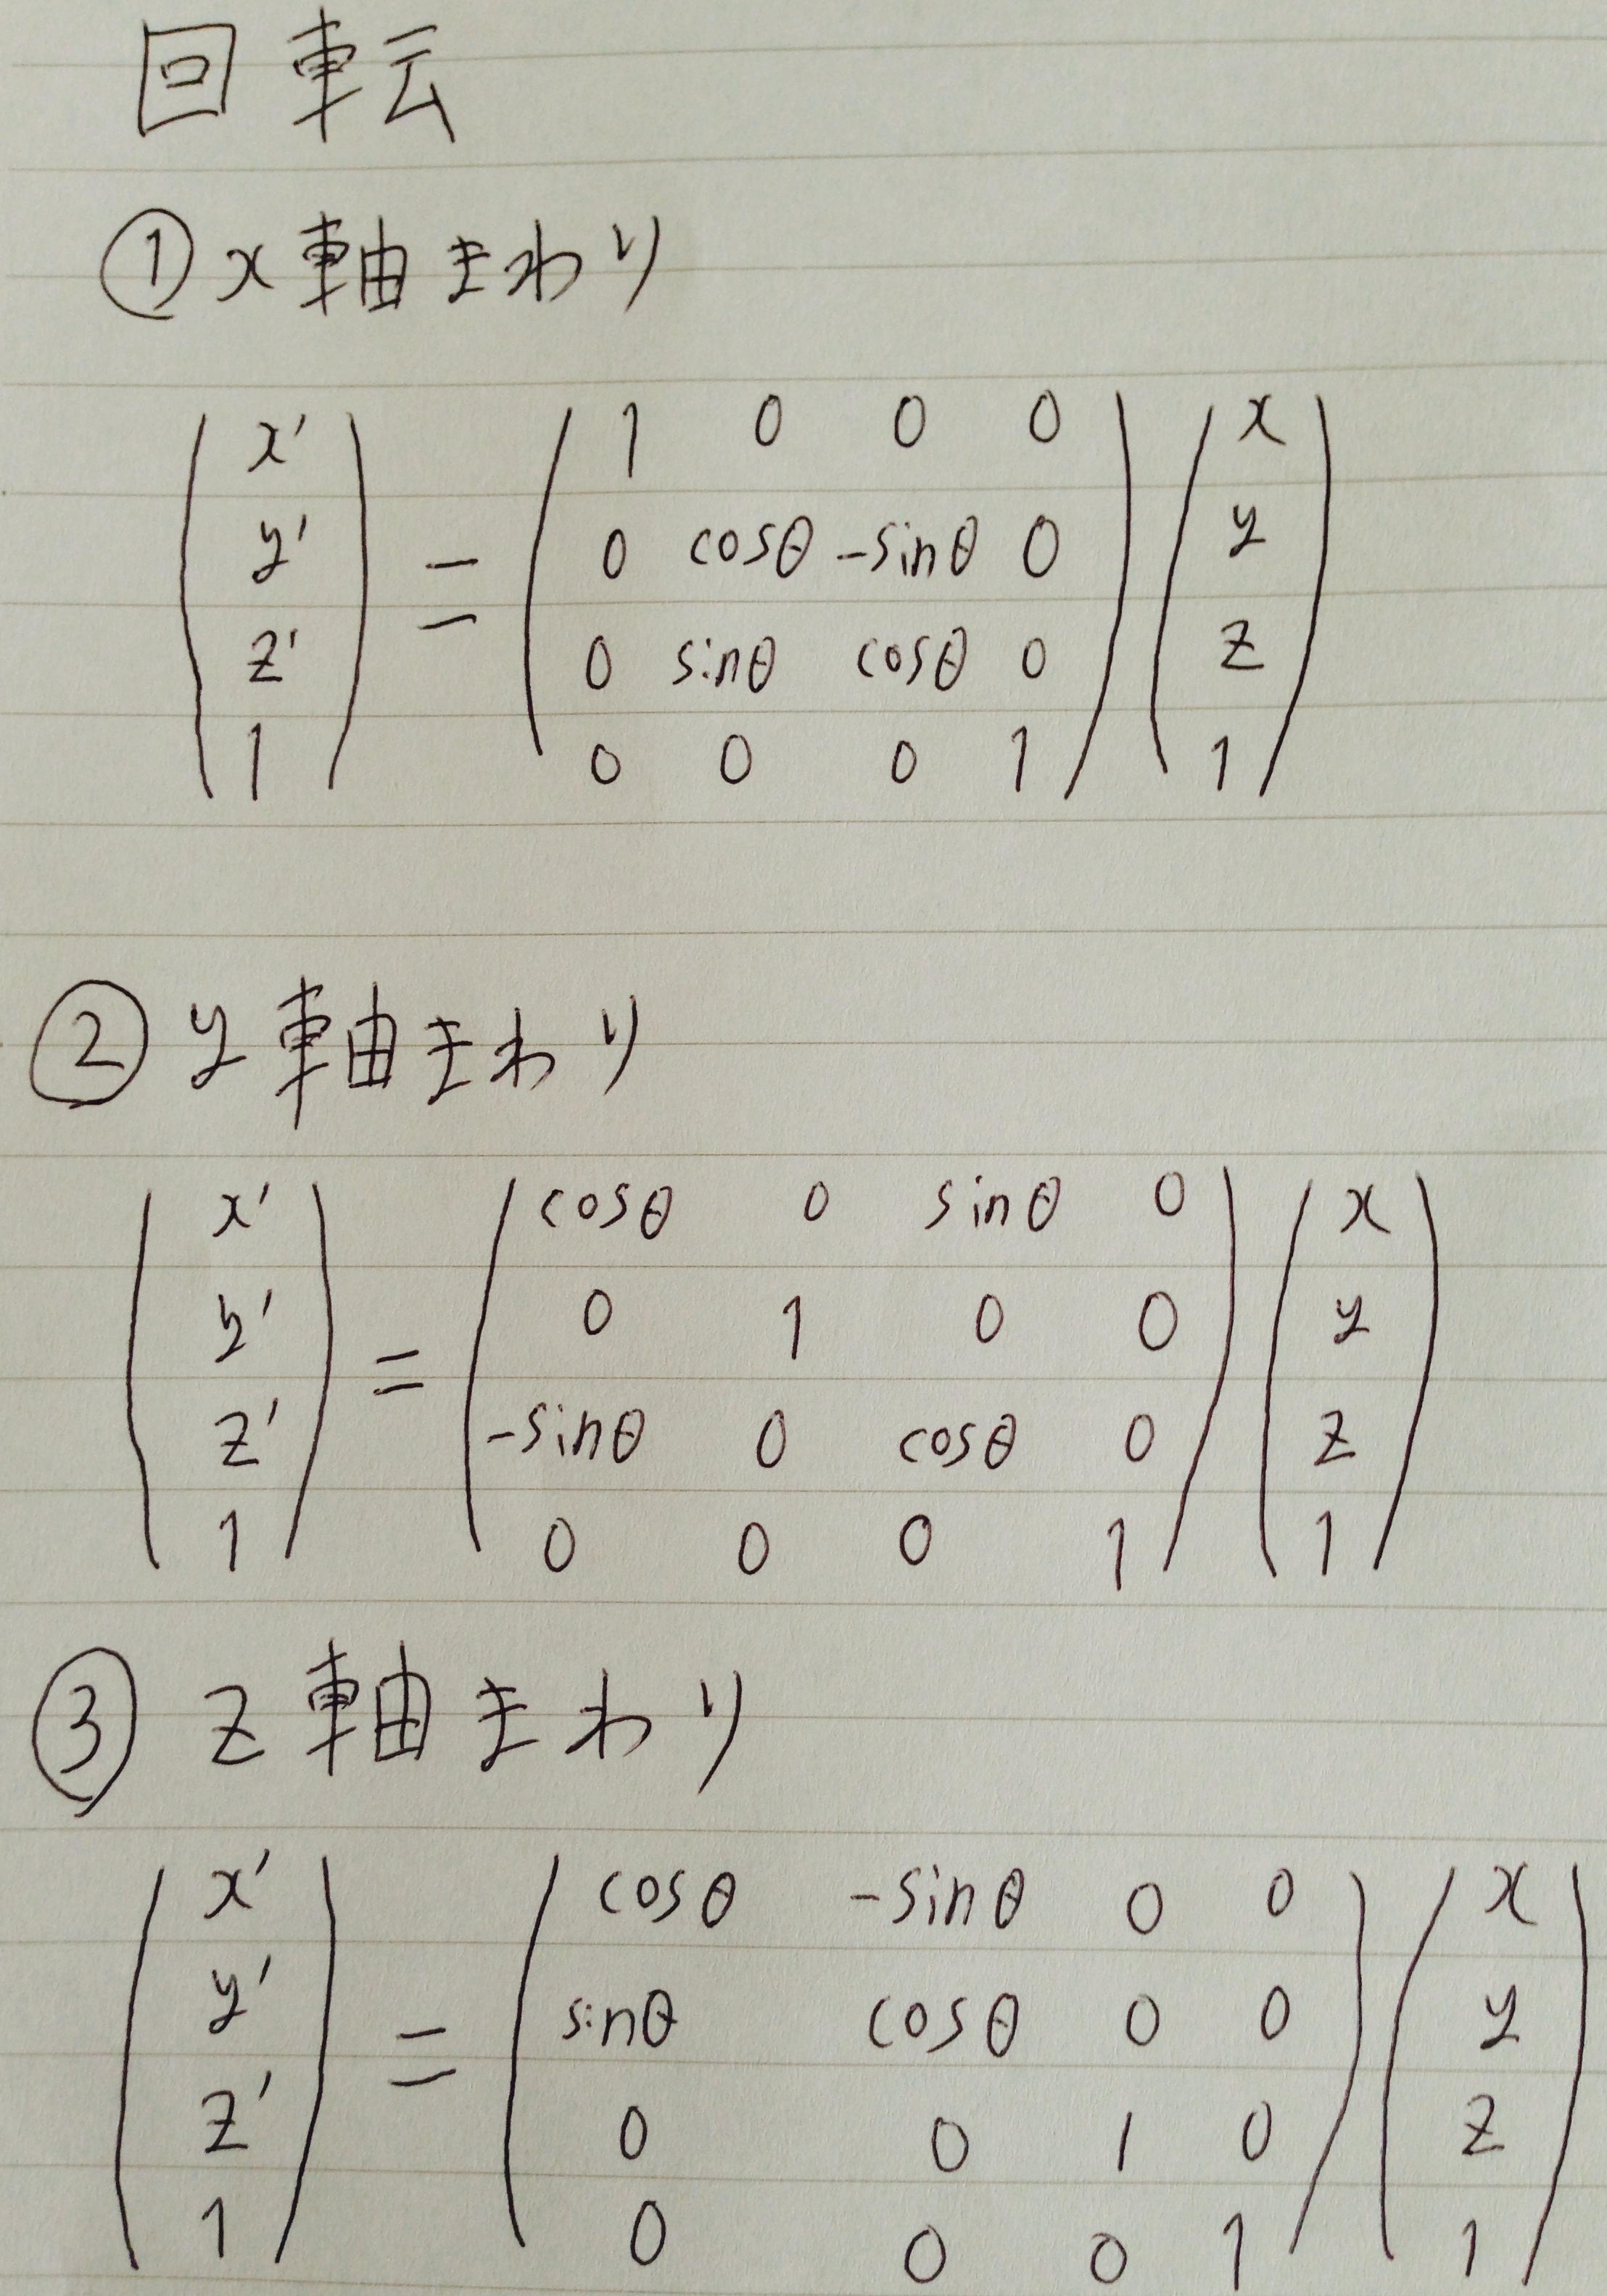 回転
① x軸まわり
(x' y' z' 1) = (1 0 0 0
0 cosθ -sinθ 0
0 sinθ cosθ 0
0 0 0 1) (x y z 1)
② y軸まわり
(x' y' z' 1) = (cosθ 0 sinθ 0
0 1 0 0
-sinθ 0 cosθ 0
0 0 0 1) (x y z 1)
③ z軸まわり
(x' y' z' 1) = (cosθ -sinθ 0 0
sinθ cosθ 0 0
0 0 1 0
0 0 0 1) (x y z 1)